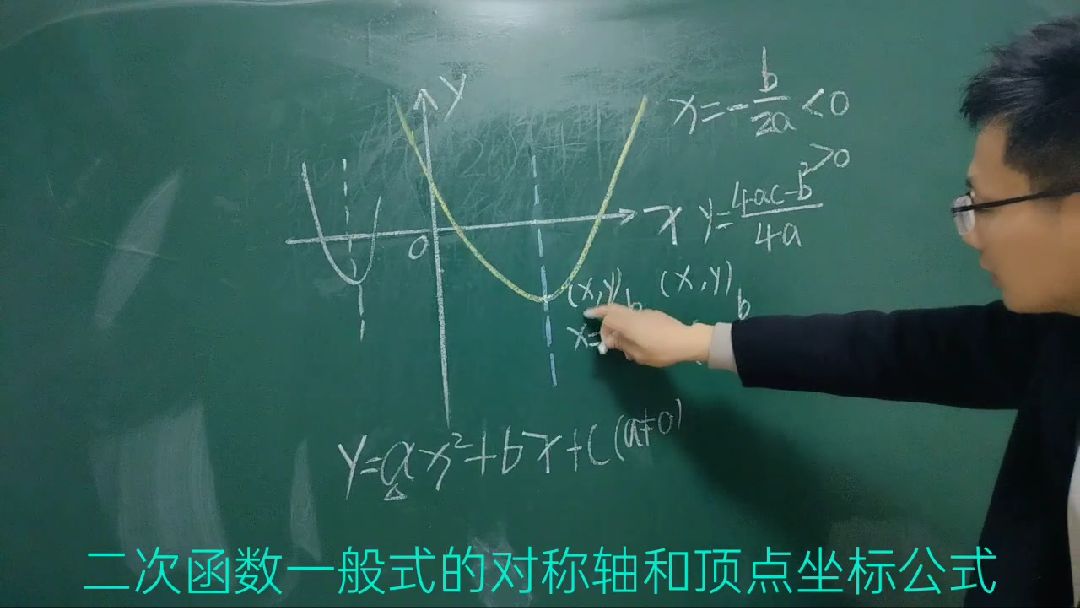 y
x=-b/2a<0
>0
x
y=4ac-b²/4a
0
(x,y)
(x,y)
b
x=
y=ax²+bx+c(a≠0)
二次函数一般式的对称轴和顶点坐标公式